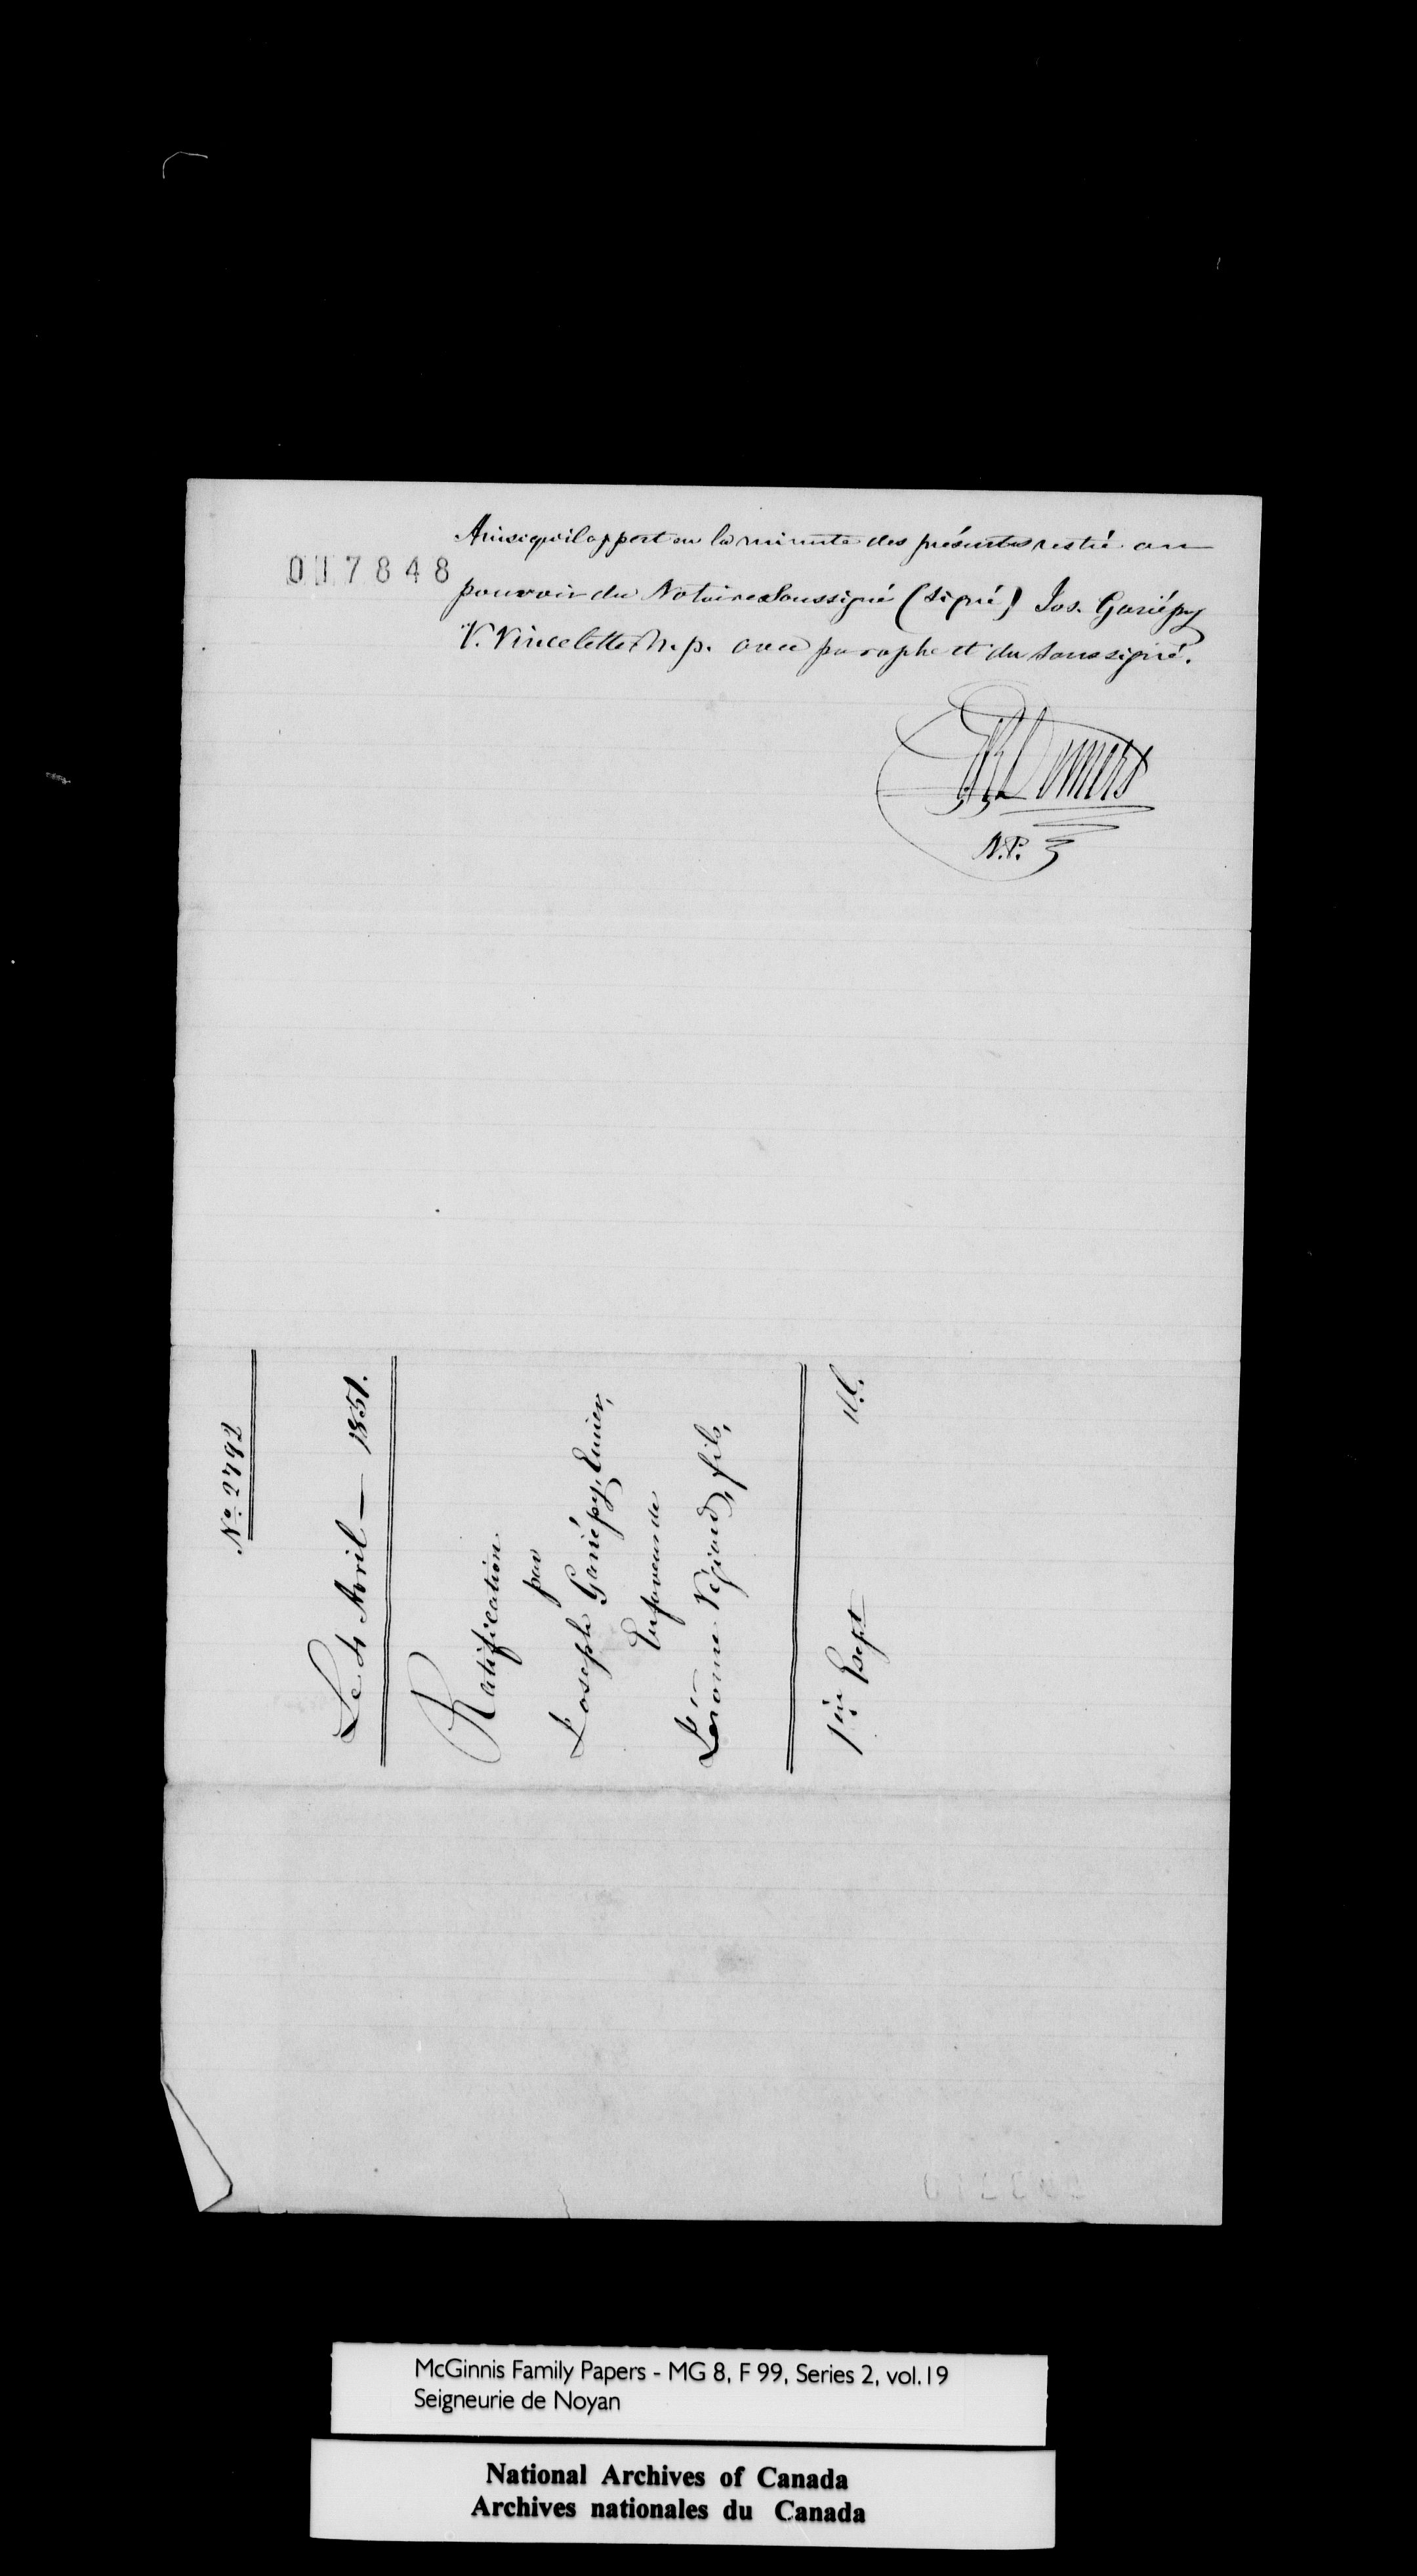 Ainsi qu'il appert en la minute des présentes restée au
017848
pouvoir du Notaire Soussigné (signé) Jos. Gariépy
V. Vincelette N. p. avec paraphe et du soussigné.
JBDemers
N.P.
No. 2792
Le 4 Avril — 1851.
Ratification
par
Joseph Gariépy, Ecuier,
En faveur de
Jérome Régiard, fils,
1ère Expt
McGinnis Family Papers - MG 8, F 99, Series 2, vol.19
Seigneurie de Noyan
National Archives of Canada
Archives nationales du Canada